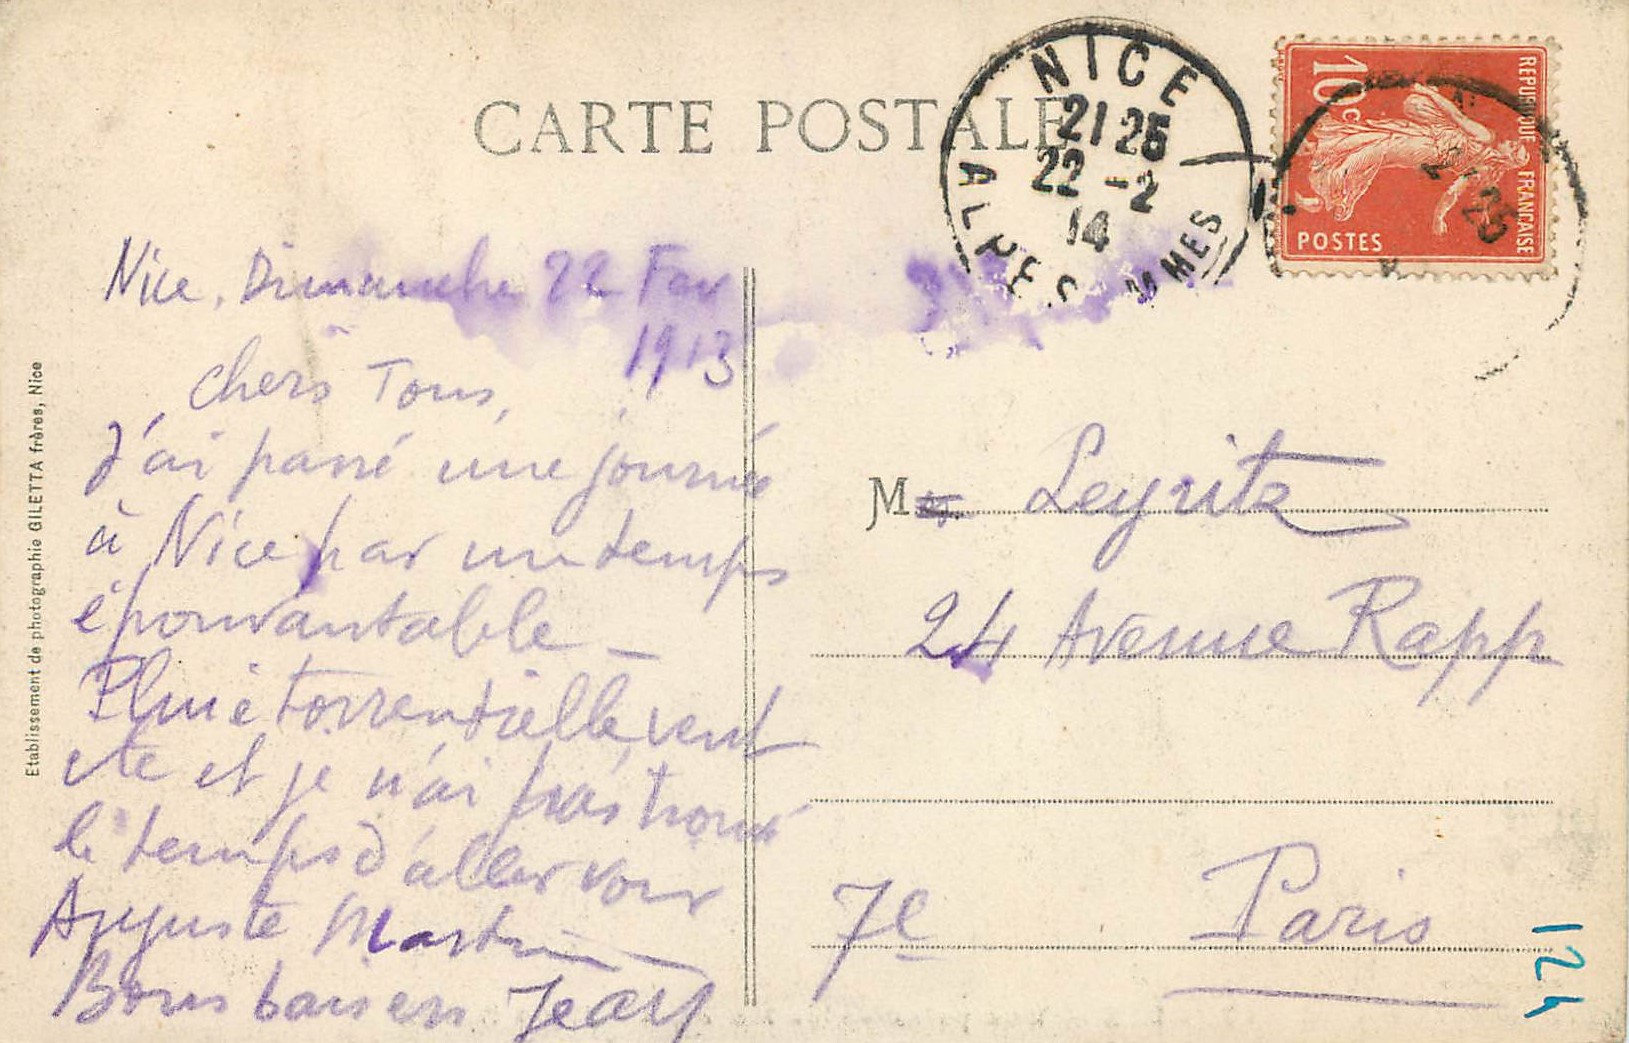 CARTE POSTALE
NICE
21 25
22 - 2
14
ALPES MMES
REPUBLIQUE FRANCAISE
10c
POSTES
Nice, Dimanche 22 Fev
1913
chers Tous,
J'ai passé une journée
à Nice par un temps
épouvantable _
Pluie torrentielle, vent
etc et je n'ai pas trouvé
le temps d'aller voir
Auguste Martin _
Bons baisers Jean
M Leyritz
24 Avenue Rapp
7e Paris
124
Etablissement de photographie GILETTA frères, Nice